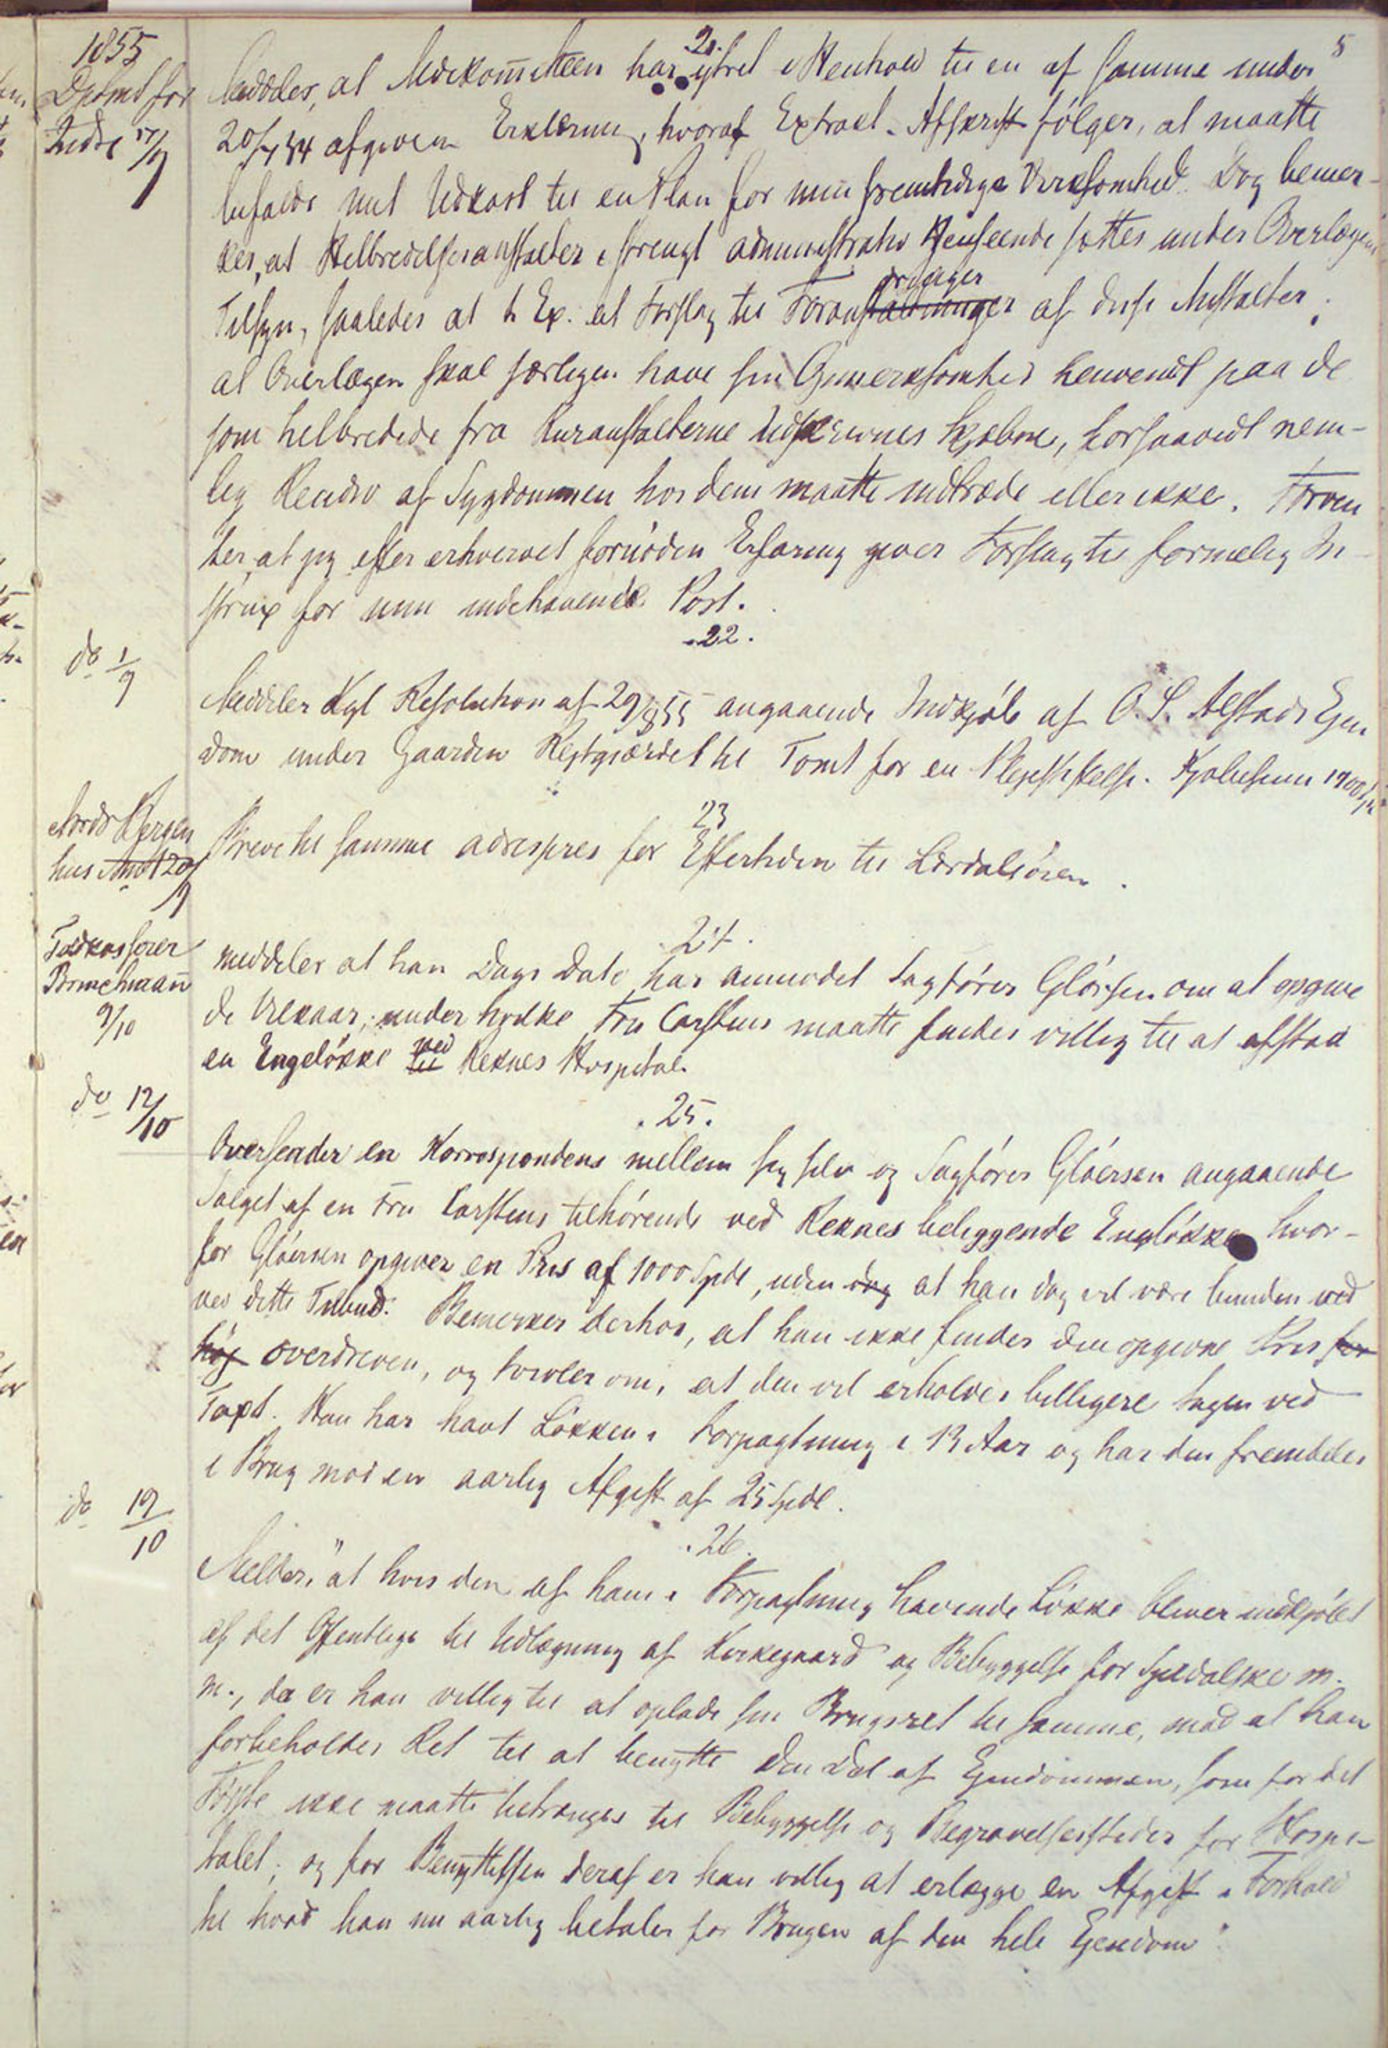 5
1855
Dptmt for
Indre 17/9
21.
Meddeler, at Medkommitteen har ytret i Henhold til en af samme under
20/7 54 afgiven Erklæring, hvoraf Extract-Afskrift følger, at maatte
befalde mit Udkast til en Plan for min fremtidige Virksomhed. Dog bemær-
kes, at Helbredelsesanstalter i strengt administrativ Henseende sættes under Overlægens
Tilsyn, saaledes at t. Ex. at Forslag til Foranstaltninger
af disse Anstalter.
at Overlægen skal særligen have sin Opmerksomhed henvendt paa de
som helbredede fra Kuranstalterne Udskrevnes Skjæbne, forsaavidt nem-
lig Recidiv af Sygdommen hos dem maatte indtræde eller ikke. Forven
ter, at jeg efter erhvervet fornøden Erfaring giver Forslag til formelig In-
strux for min indehavende Post.
22.
do 1/9
Meddeler Kgl Resolution af 29/8 55 angaaende Indkjøb af O. S. Alstads Ejen
dom under Gaarden Rejtgjærdet til Tomt for en Plejestiftelse. Kjøbesum 1700
23
Nordre Bergen
hus Amt 20/9
Breve til samme adresseres for Eftertiden til Lærdalsøren.
24.
Toldkasserer
Brinchmann
9/10
meddeler at han Dags Dato har anmodet Sagfører Gløersen om at opgive
de Vilkaar, under hvilke Fru Carstens maatte findes villig til at afstaa
en Engeløkke til ved Reknes Hospital.
25.
do 12/10
Oversender en Korrespondens mellem sig selv og Sagfører Gløersen angaaende
Salget af en Fru Carstens tilhørende ved Reknes beliggende Engløkke, hvor-
for Gløersen opgiver en Pris af 1000 Spdl, uden dog at han dog vil være bunden ved
ved dette Tilbud. Bemerker derhos, at han ikke finder den opgivne Pris for
høj overdreven, og tvivler om, at den vil erholdes billigere tagen ved
Taxt. Han har havt Løkken i Forpagtning i 13 Aar og har den fremdeles
i Brug mod en aarlig Afgift af 25 Spdl.
26.
do 19/10
Melder, "at hvis den af ham i Forpagtning havende Løkke bliver indkjøbt
af det Offentlige til Udlægning af Kirkegaard og Bebyggelse for Spedalske m.
m., da er han villig til at oplade sin Brugsret til samme, mod at han
forbeholdes Ret til at benytte den Del af Ejendommen, som for det
Første ikke maatte betrænges til Bebyggelse og Begravelsessteder for Hospi-
talet; og for Benyttelsen deraf er han villig at erlægge en Afgift i Forhold
til hvad han nu aarlig betaler for Brugen af den hele Ejendom"